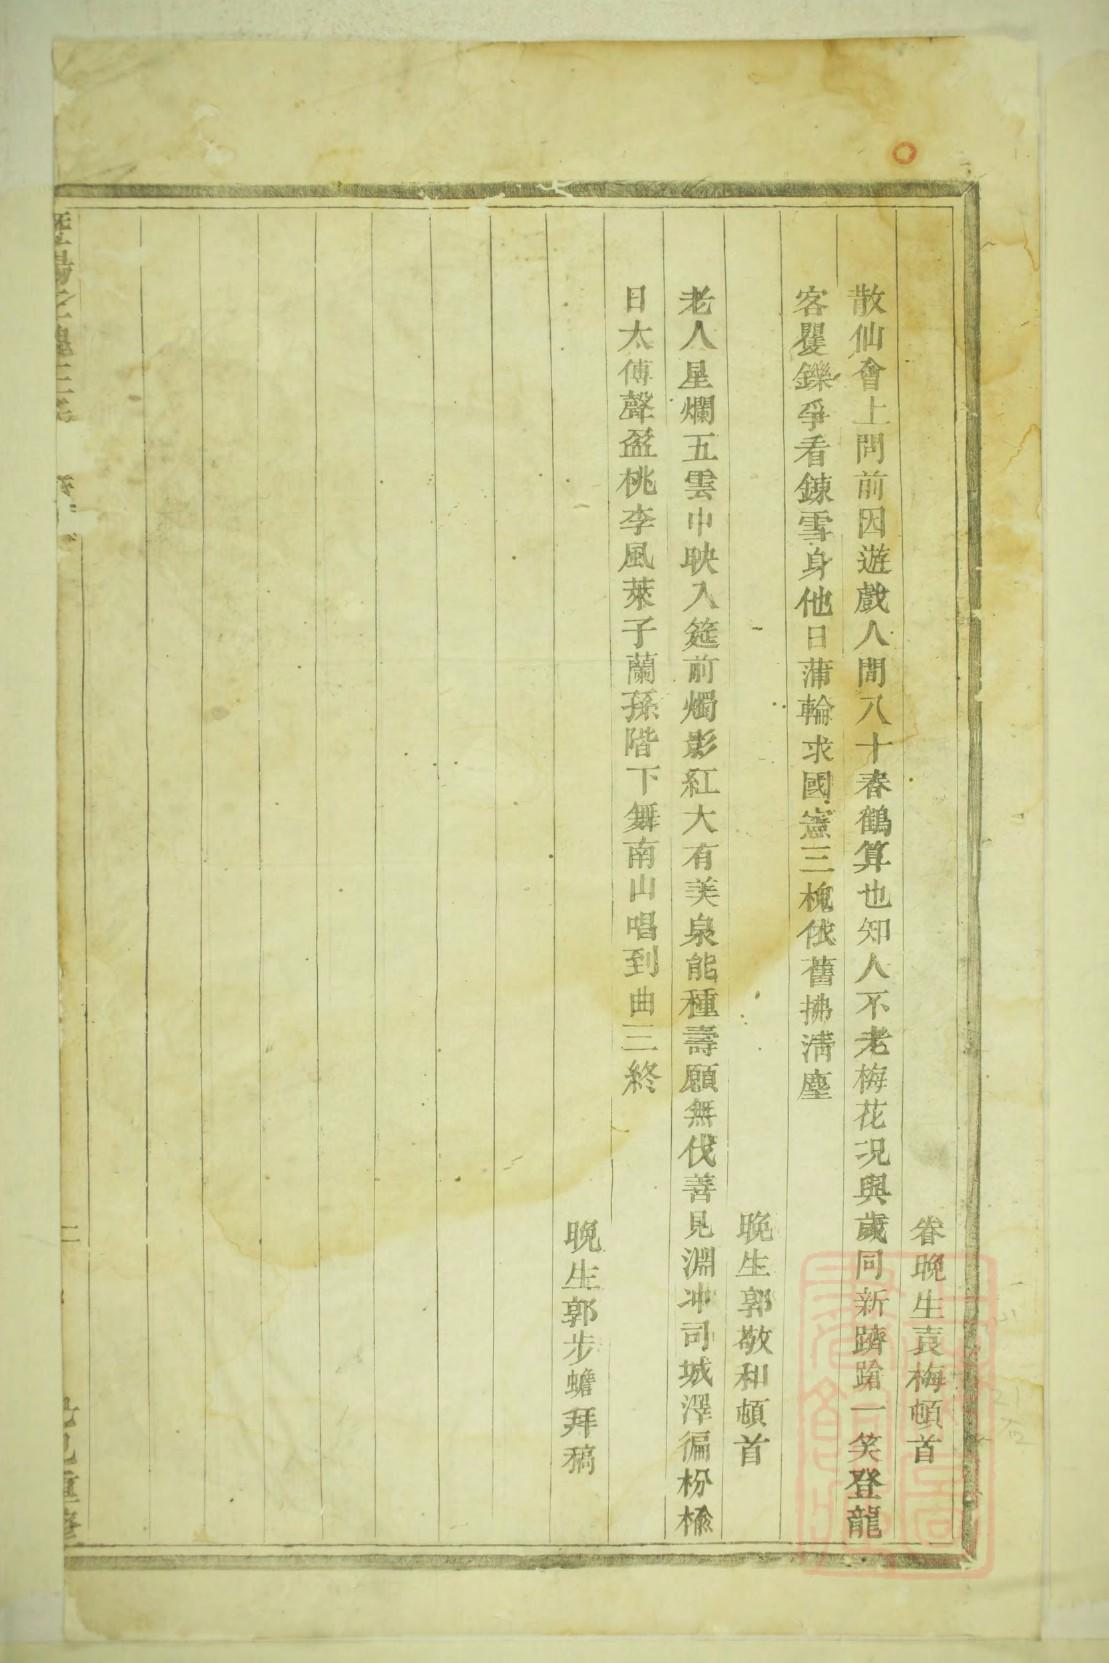 眷晚生袁梅頓首
散仙會上問前因遊戲人間八十春鶴算也知人不老梅花況與歲同新躋蹌一笑登龍
客矍鑠爭看鍊雪身他日蒲輪求國憲三槐依舊拂清塵
晚生郭敬和頓首
老人星爛五雲中映入筵前燭影紅大有美泉能種壽願無伐善見淵冲司城澤徧枌榆
日太傅聲盈桃李風萊子蘭孫階下舞南山唱到曲三終
晚生郭步蟾拜稿